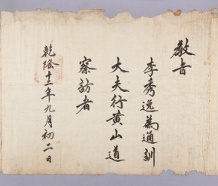 敎旨
李秀逸爲通訓
大夫行黃山道
察訪者
乾隆十二年九月初二日